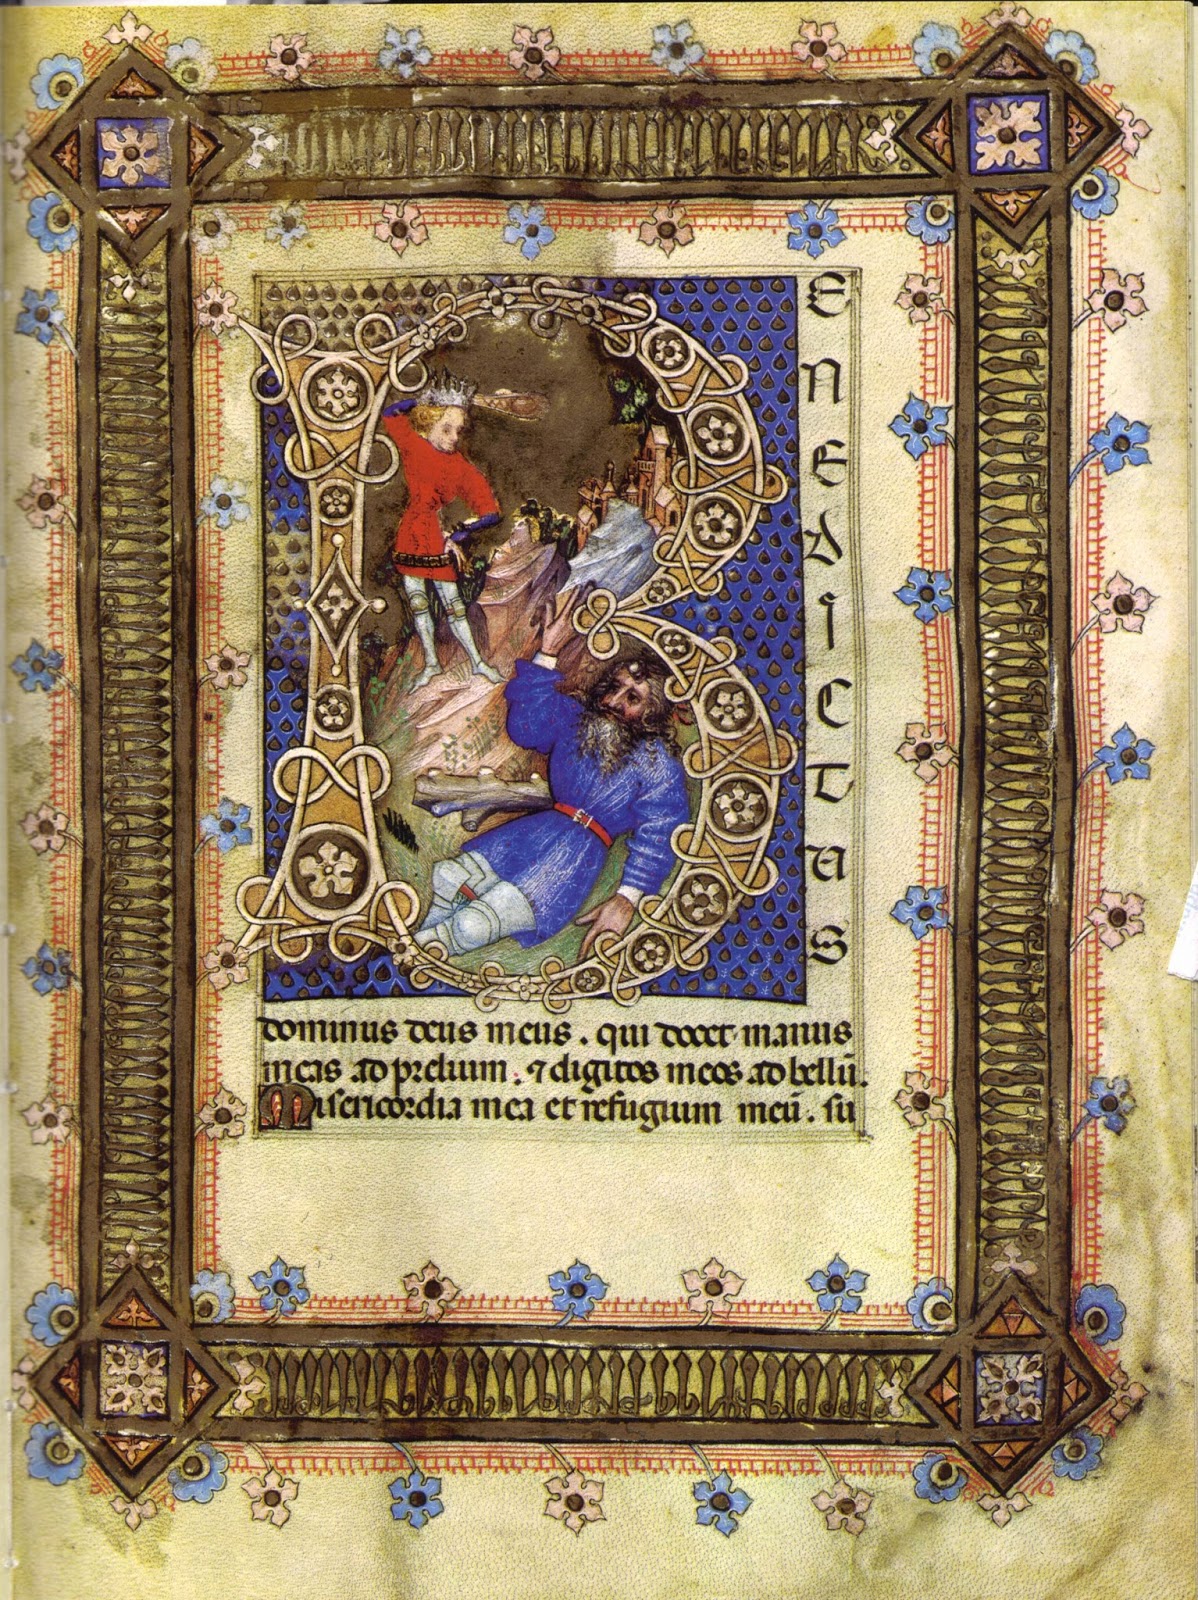 Benedictus
dominus deus meus . qui docet manus
meas ad prelium . ⁊ digitos meos ad bellū.
Misericordia mea et refugium meū . su